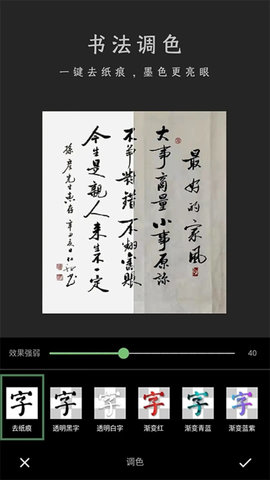 书法调色
一键去纸痕，墨色更亮眼
最好的家風
大事商量小事原諒
不争對錯不翻舊賬
今生是親人来生不一定
先生惠存
效果强弱
40
字 字 字 字 字 字
去纸痕 透明黑字 透明白字 渐变红 渐变青蓝 渐变蓝紫
调色